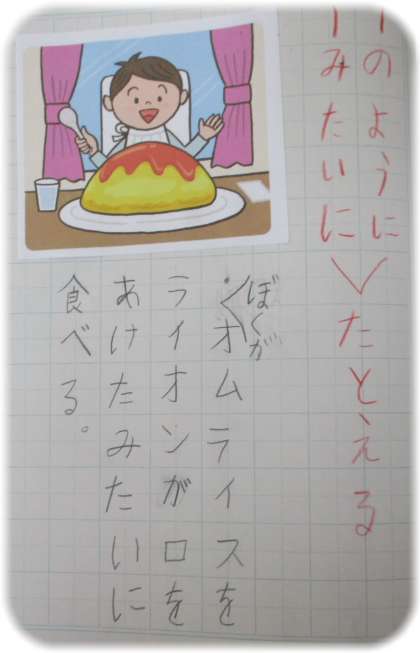 ーのように
ーみたいに
たとえる
ぼくが
オムライスを
ライオンが口を
あけたみたいに
食べる。